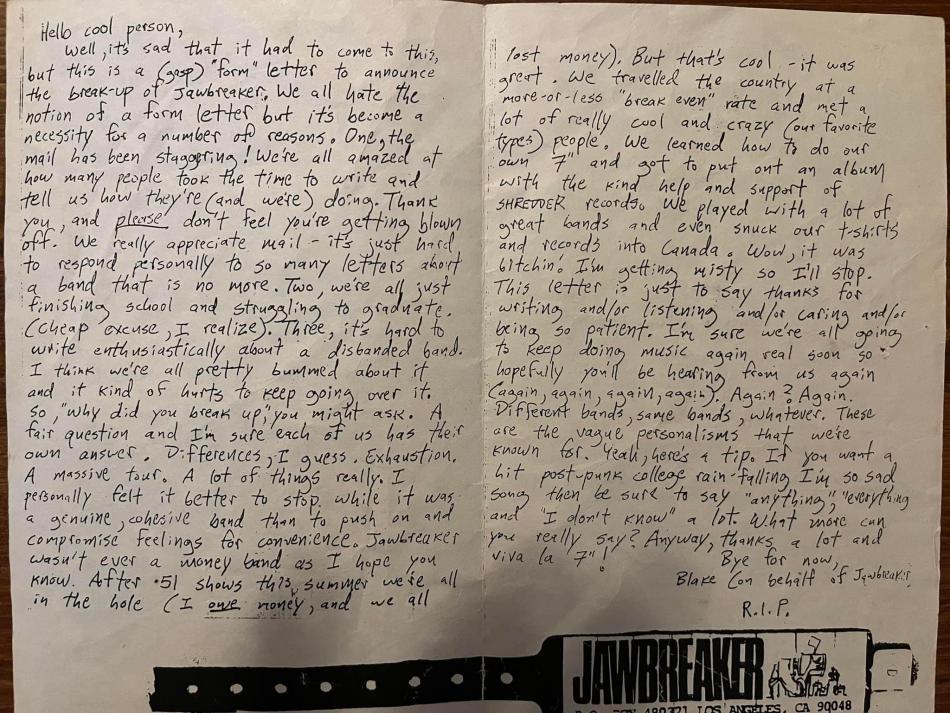 Hello cool person,
Well, it's sad that it had to come to this,
but this is a (gasp) "form" letter to announce
the break-up of Jawbreaker. We all hate the
notion of a form letter but it's become a
necessity for a number of reasons. One, the
mail has been staggering! We're all amazed at
how many people took the time to write and
tell us how they're (and we're) doing. Thank
you, and please! don't feel you're getting blown
off. We really appreciate mail - it's just hard
to respond personally to so many letters about
a band that is no more. Two, we're all just
finishing school and struggling to graduate.
(cheap excuse, I realize). Three, it's hard to
write enthusiastically about a disbanded band.
I think we're all pretty bummed about it
and it kind of hurts to keep going over it.
So, "Why did you break up," you might ask. A
fair question and I'm sure each of us has their
own answer. Differences, I guess. Exhaustion.
A massive tour. A lot of things really. I
personally felt it better to stop while it was
a genuine, cohesive band than to push on and
compromise feelings for convenience. Jawbreaker
wasn't ever a money band as I hope you
know. After 51 shows this summer we're all
in the hole (I owe money, and we all
lost money). But that's cool - it was
great. We travelled the country at a
more-or-less "break even" rate and met a
lot of really cool and crazy (our favorite
types) people. We learned how to do our
own 7" and got to put out an album
with the kind help and support of
SHREDDER records. We played with a lot of
great bands and even snuck our t-shirts
and records into Canada. Wow, it was
bitchin'. I'm getting misty so I'll stop.
This letter is just to say thanks for
writing and/or listening and/or caring and/or
being so patient. I'm sure we're all going
to keep doing music again real soon so
hopefully you'll be hearing from us again
(again, again, again, again). Again? Again.
Different bands, same bands, whatever. These
are the vague personalisms that we're
known for. Yeah, here's a tip. If you want a
hit post-punk college rain-falling I'm so sad
song then be sure to say "anything," "everything
and "I don't know" a lot. What more can
you really say? Anyway, thanks a lot and
viva la 7"!
Bye for now,
Blake (on behalf of Jawbreaker.
R.I.P.
JAWBREAKER
P.O. BOX 480321 LOS ANGELES, CA 90048